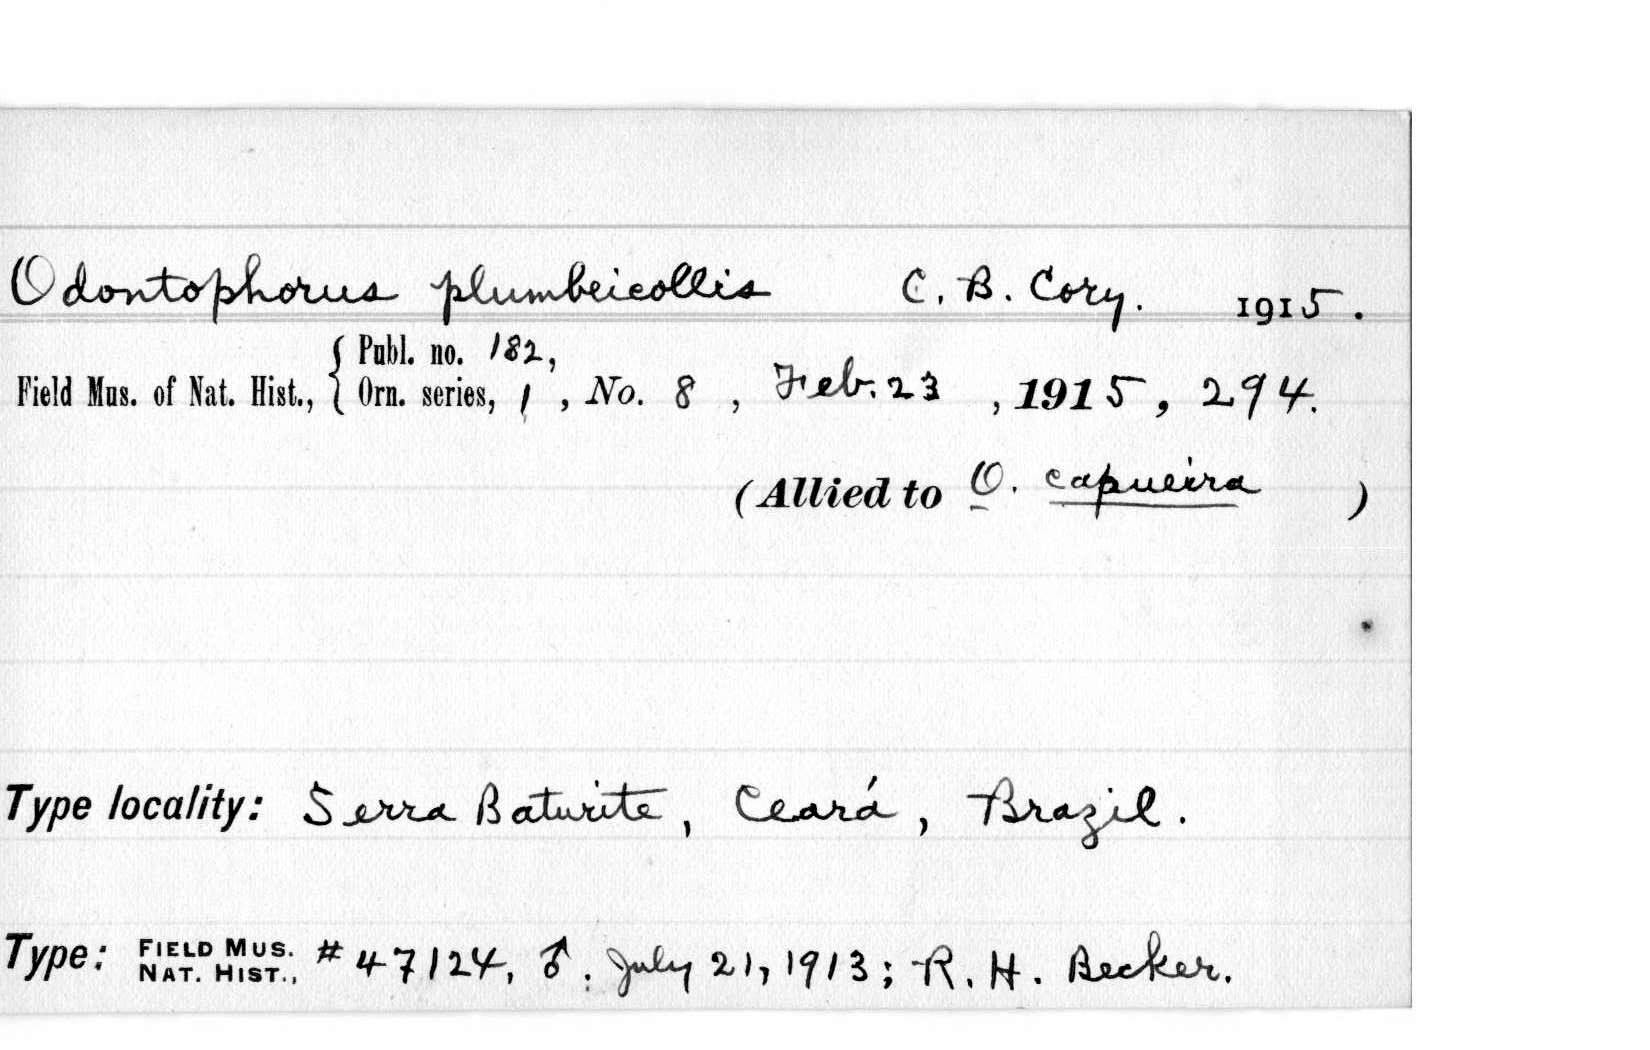 Odontophorus plumbeicollis C. B. Cory. 1915.
Field Mus. of Nat. Hist., { Publ. no. 182,
Orn. series, 1, No. 8, Feb. 23, 1915, 294.
(Allied to O. capueira )
Type locality: Serra Baturite, Ceará, Brazil.
Type: FIELD MUS. NAT. HIST., # 47124, ♂. July 21, 1913; R. H. Becker.